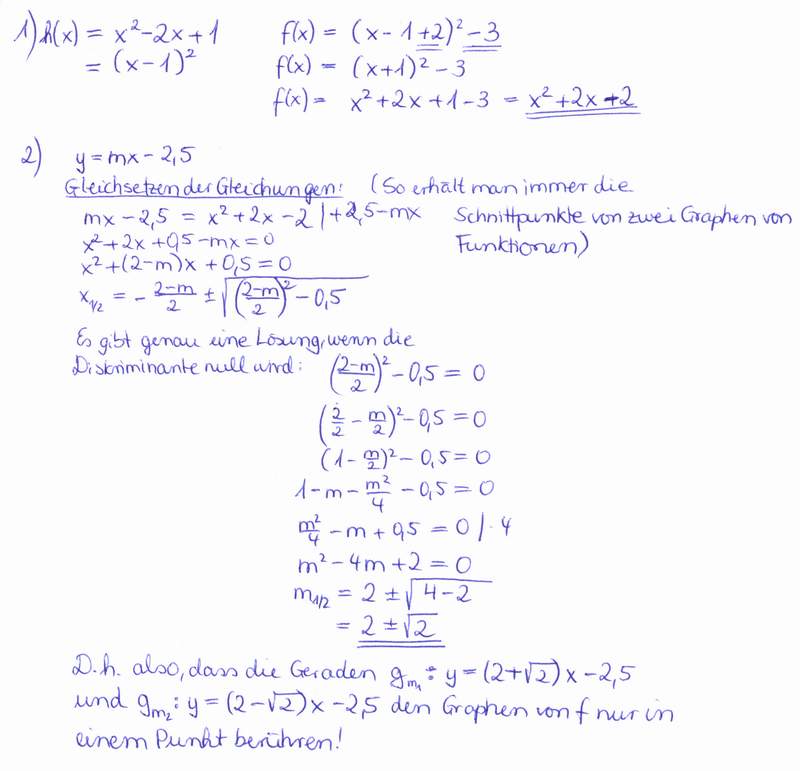 1) h(x) = x² - 2x + 1
= (x - 1)²
f(x) = (x - 1 + 2)² - 3
f(x) = (x+1)² - 3
f(x) = x² + 2x + 1 - 3 = x² + 2x + 2
2) y = mx - 2,5
Gleichsetzen der Gleichungen: (So erhält man immer die
mx - 2,5 = x² + 2x - 2 | + 2,5 - mx Schnittpunkte von zwei Graphen von
x² + 2x + 0,5 - mx = 0 Funktionen)
x² + (2-m)x + 0,5 = 0
x₁/₂ = - (2-m)/2 ± √((2-m)/2)² - 0,5
Es gibt genau eine Lösung, wenn die
Diskriminante null wird: ((2-m)/2)² - 0,5 = 0
(2/2 - m/2)² - 0,5 = 0
(1 - m/2)² - 0,5 = 0
1 - m - m²/4 - 0,5 = 0
m²/4 - m + 0,5 = 0 | · 4
m² - 4m + 2 = 0
m₁/₂ = 2 ± √4 - 2
= 2 ± √2
D.h. also, dass die Geraden gₘ₁: y = (2+√2)x - 2,5
und gₘ₂: y = (2-√2)x - 2,5 den Graphen von f nur in
einem Punkt berühren!